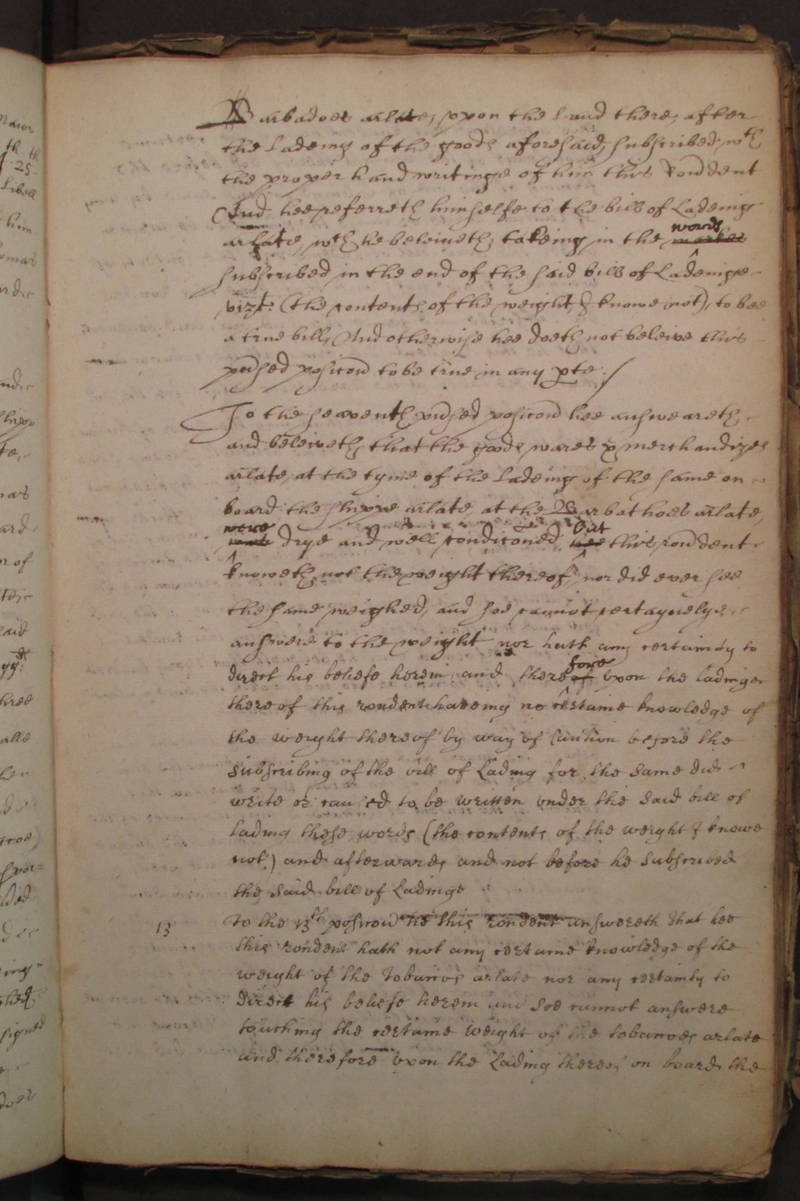 Barbadoes arlate, upon the land there, after
the Ladeing of the goods aforesaid, subscribed wth
the proper handwritinge of him this Rondent
And hee referreth himselfe to the bill of Ladeing
arlate wch he beleiveth, takeing in the words
subscribed in the end of the said bill of Ladeinge
vizt: (the contents of the weight I knowe not), to bee
a true bill, And otherwise hee doeth not beleive this
pñsed position to be true in any pte:/
To the seaventh pñsed position hee answeareth
and beleiveth, that the goods wares & merchandizes
arlate, at the tyme of the Ladeing of the same on
board the shipp arlate, at the Barbathoes arlate,
were drye and well conditioned, but this rondent
knoweth not the weight thereof, nor did ever see
the same weighed, and soe cannot certaynelye
answere to the weight nor hath any certainty to
direct his beliefe herein and therefore upon the ladinge
thereof this rondent haveing no certaine knowledge of
the weight thereof by way of Caution before the
subscribing of the bill of Lading for the same did
write or caused to be written under the said bill of
lading these words (the contents of the weight I knowe
not) and afterwards and not before he subscribed
the said bill of Ladinge
13 To the 13th position this rondent answereth that hee
this rondent hath not any certaine knowledge of the
weight of the Tobaccoes arlate nor any certainty to
direct his beliefe herein and soe cannot answere
touching the certaine weight of the tobaccoes arlate
and therefore upon the Lading thereof on board the